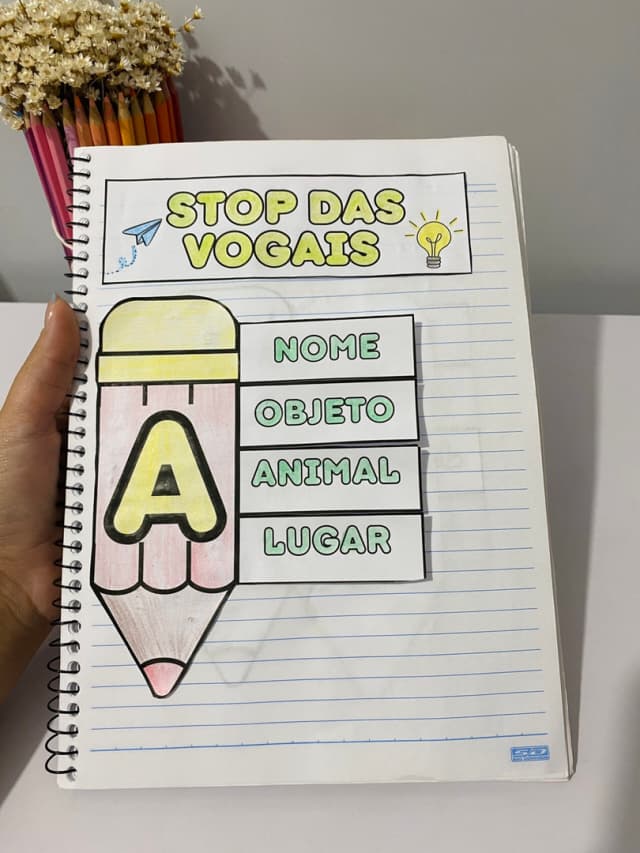 STOP DAS
VOGAIS
A
NOME
OBJETO
ANIMAL
LUGAR